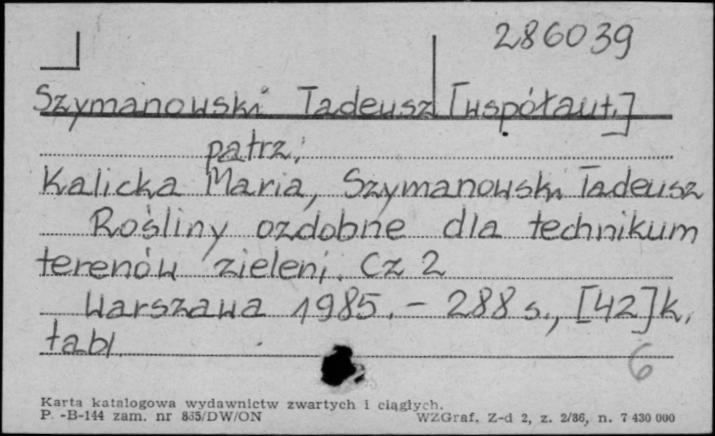 286039
Szymanowski Tadeusz [współaut.]
patrz:
Kalicka Maria, Szymanowski Tadeusz
Rośliny ozdobne dla technikum
terenów zieleni. Cz 2
Warszawa 1985. - 288 s., [42] k.
tabl.
6
Karta katalogowa wydawnictw zwartych i ciągłych.
P. -B-144 zam. nr 835/DW/ON WZGraf. Z-d 2, z. 2/86, n. 7 430 000